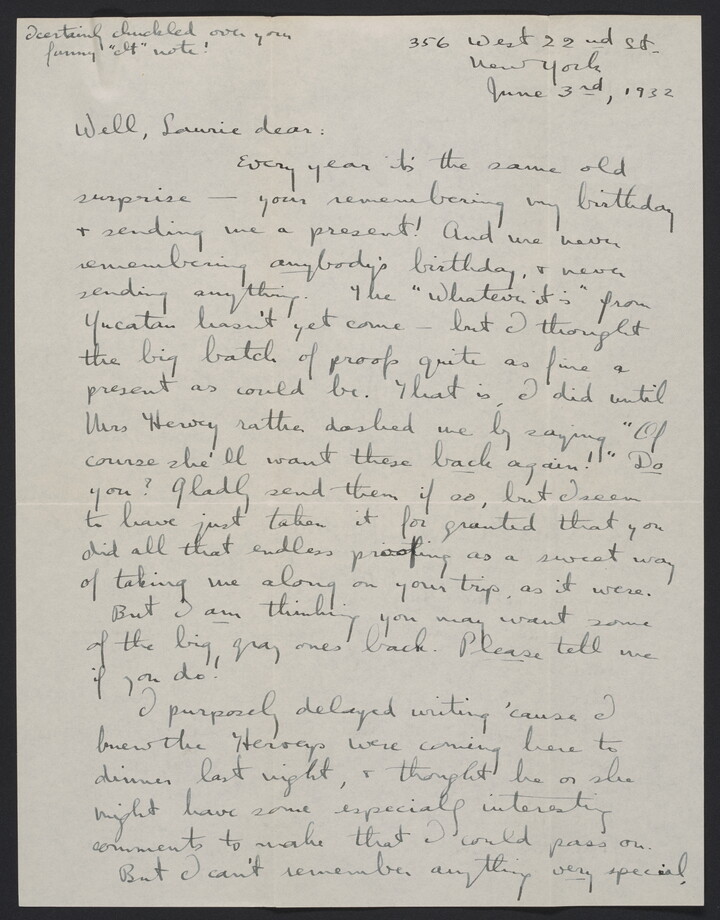 I certainly chuckled over your
funny "it" note!
356 West 22nd St.
New York
June 3rd, 1932
Well, Laurie dear:
Every year it's the same old
surprise — your remembering my birthday
+ sending me a present! And me never
remembering anybody's birthday, + never
sending anything. The "Whatever it is" from
Yucatan hasn't yet come — but I thought
the big batch of proofs quite as fine a
present as could be. That is, I did until
Mrs Hervey rather dashed me by saying "Of
course she'll want these back again!" Do
you? Gladly send them if so, but I seem
to have just taken it for granted that you
did all that endless proofing as a sweet way
of taking me along on your trip, as it were.
But I am thinking you may want some
of the big, gray ones back. Please tell me
if you do!
I purposely delayed writing 'cause I
knew the Herveys were coming here to
dinner last night, + thought he or she
might have some especially interesting
comments to make that I could pass on.
But I can't remember anything very special,